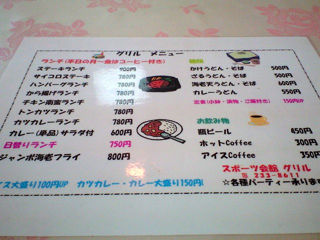 グリル メニュー
ランチ (平日の月～金はコーヒー付き)
ステーキランチ 900円
サイコロステーキ 780円
ハンバーグランチ 780円
から揚げランチ 780円
チキン南蛮ランチ 780円
トンカツランチ 780円
カツカレーランチ 780円
カレー(単品)サラダ付 600円
日替りランチ 750円
ジャンボ海老フライ 800円
麺類
かけうどん・そば 500円
ざるうどん・そば 500円
海老天うどん・そば 600円
カレーうどん 550円
定食(小鉢・漬物・ご飯付き) 150円UP
お飲み物
瓶ビール 650円
ホットCoffee 300円
アイスCoffee 350円
大盛り100円UP カツカレー・カレー大盛り150円!
スポーツ会館 グリル
☎ 233-8611
☆各種パーティー承ります